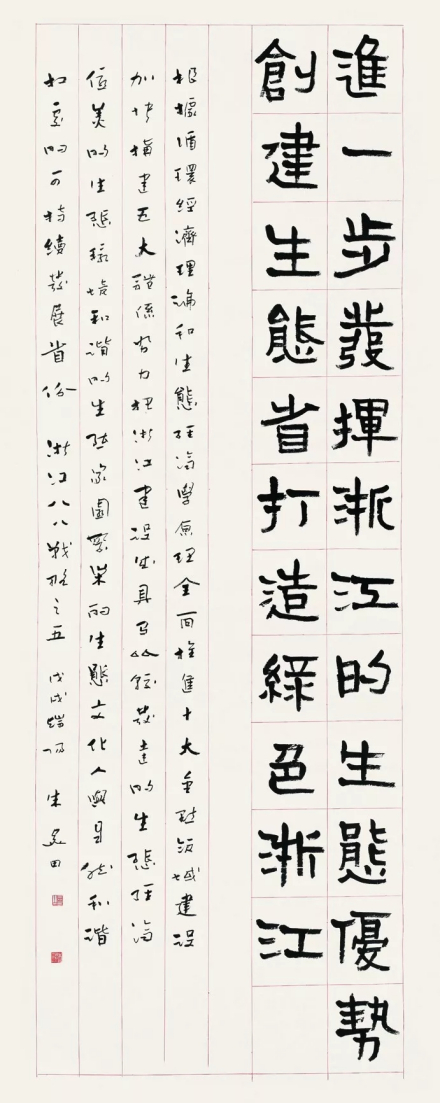 進一步發揮浙江的生態優勢
創建生態省打造綠色浙江
根據循環經濟理論和生態經濟學原理全面推進十大重點領域建設
加快構建五大體係努力把浙江建設成具有比較發達的生態經濟
優美的生態環境和諧的生態家園繁榮的生態文化人與自然和諧
相處的可持續發展省份 浙江八八戰略之五 戊戌 朱 田